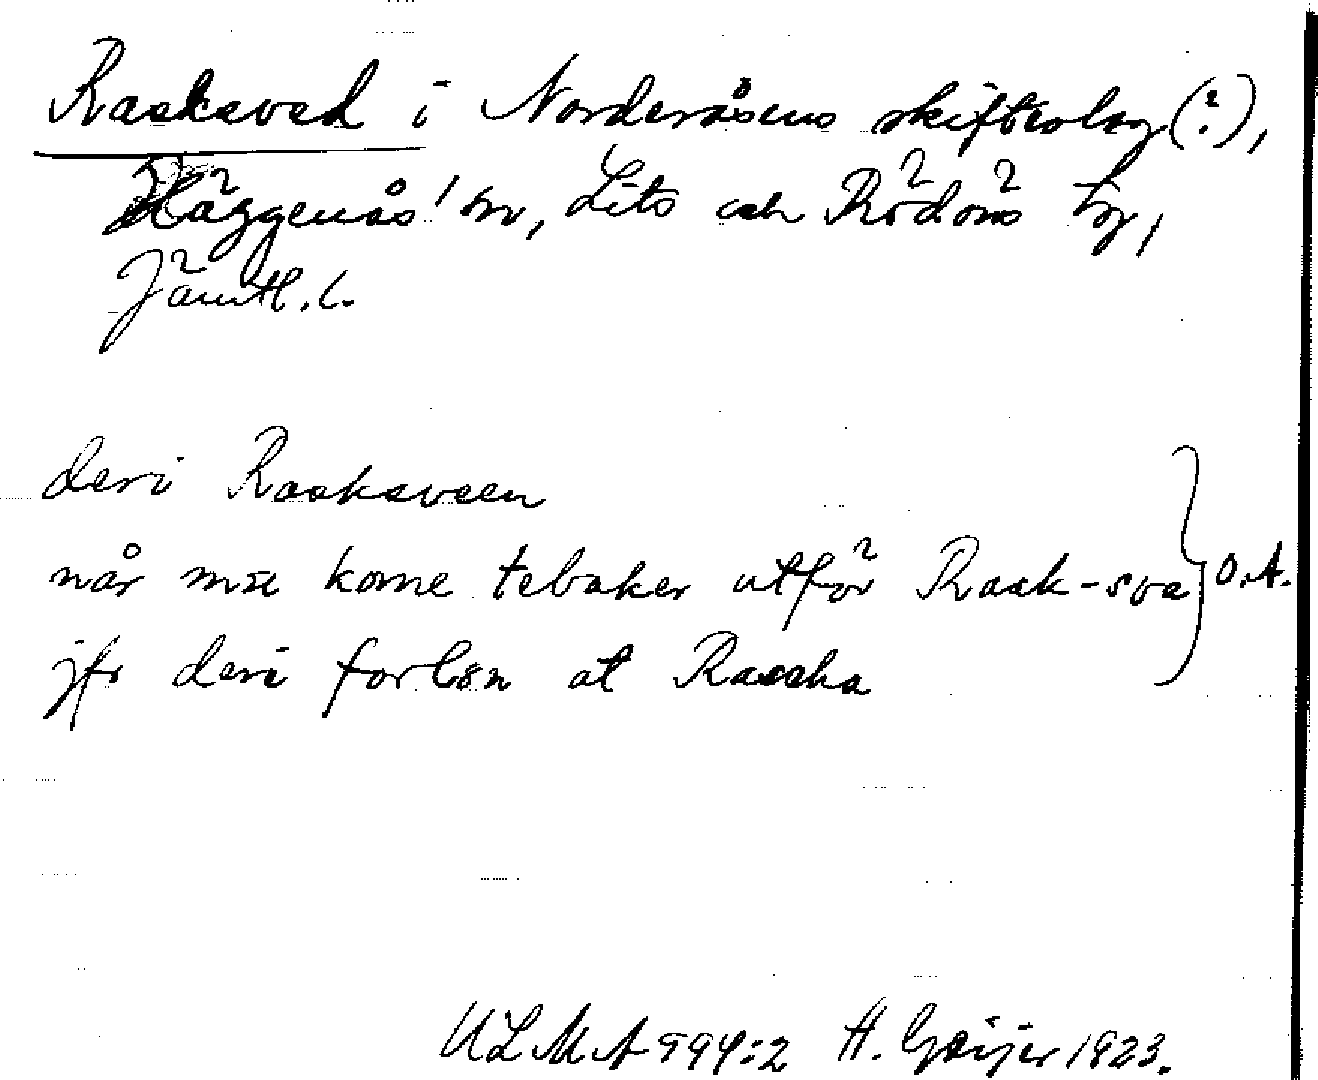 Rasksved i Norderåsens skifteslag (?),
Häggenås sn, Lits och Rödöns tg,
Jämtl. l.
deri Raaksveen
når mæ kome tebaker utför Raak-sve } O.A.
jfr deri forben at Raaska
ULMA 994:2 H. Geijer 1923.